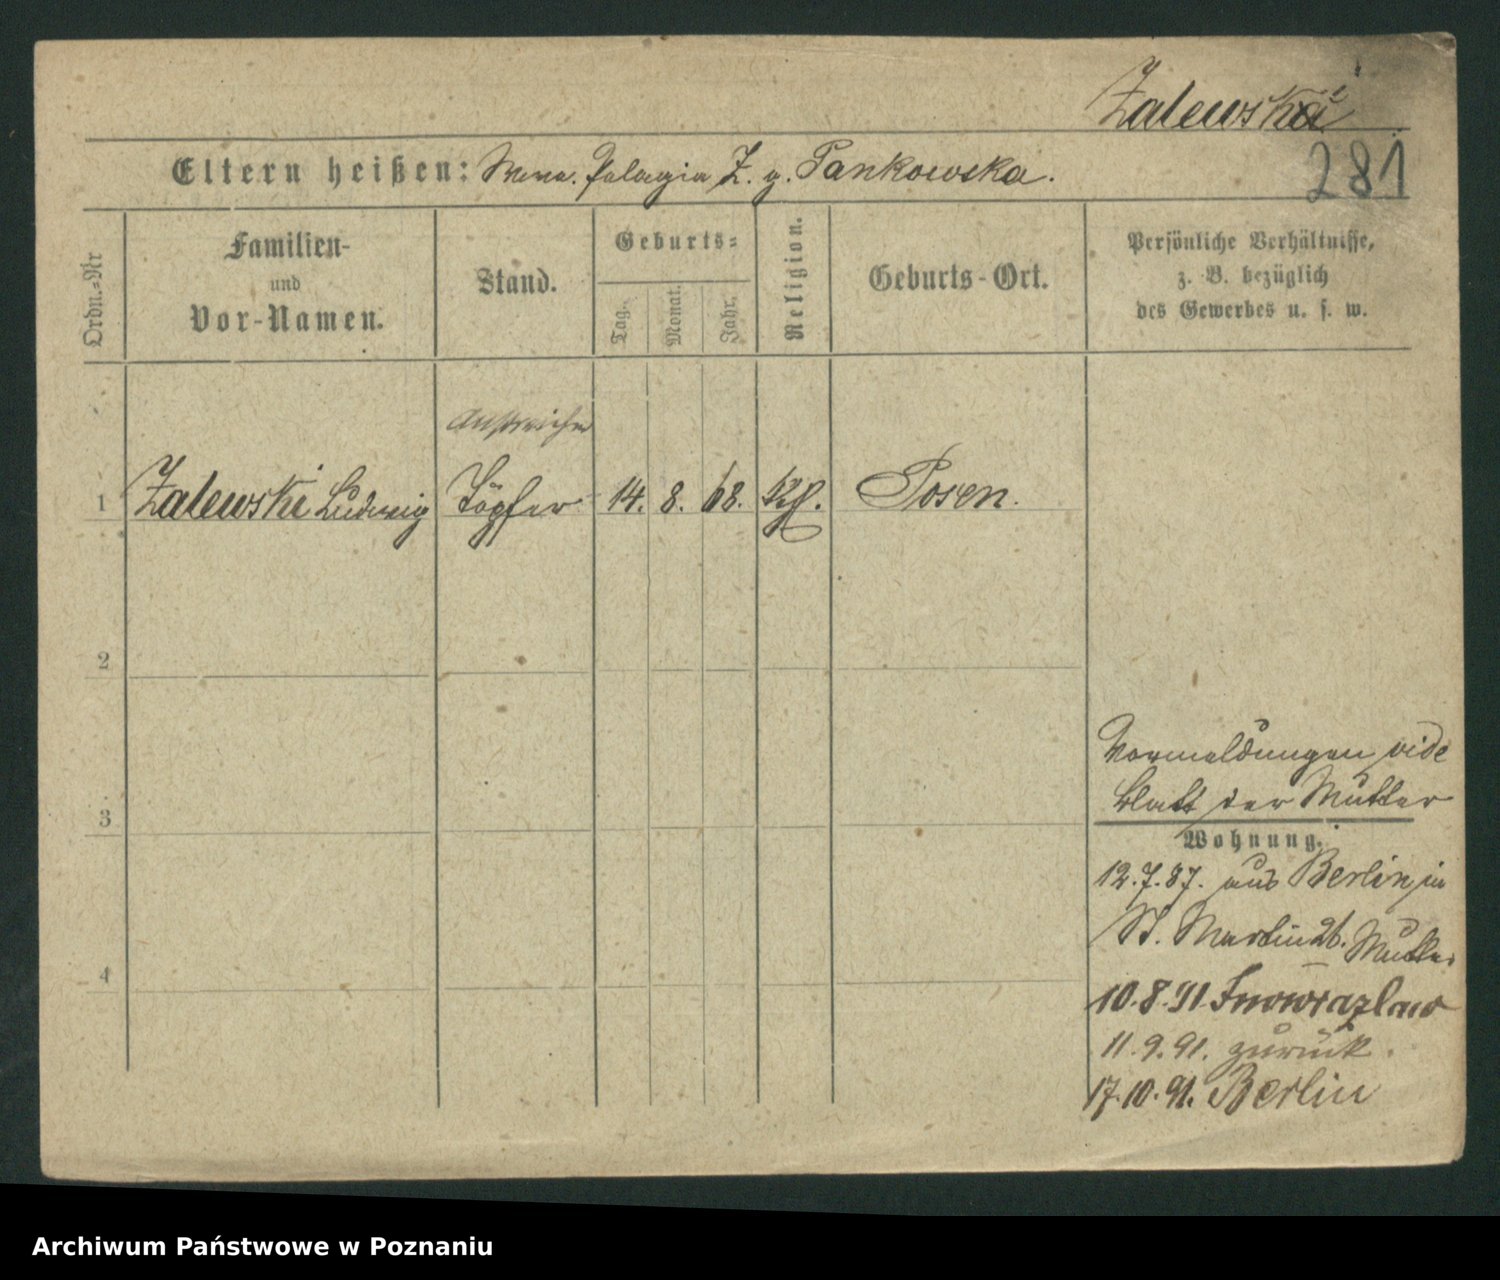 Zalewski
Eltern heißen: Wwe. Pelagia Z. g. Pankowska.
281
Ordn.-Nr
Familien-
und
Vor-Namen.
Stand.
Geburts-
Tag.
Monat.
Jahr.
Religion.
Geburts-Ort.
Persönliche Verhältnisse,
z. B. bezüglich
des Gewerbes u. s. w.
Anstreicher
1 Zalewski Ludwig Töpfer 14. 8. 68. Kth. Posen.
2
3
4
Vormeldungen vide
Blatt der Mutter
Wohnung.
12.7.87. aus Berlin in
St. Martin 26. Mutter
10.8.91 Inowrazlaw
11.9.91. zurück.
17.10.91. Berlin
Archiwum Państwowe w Poznaniu